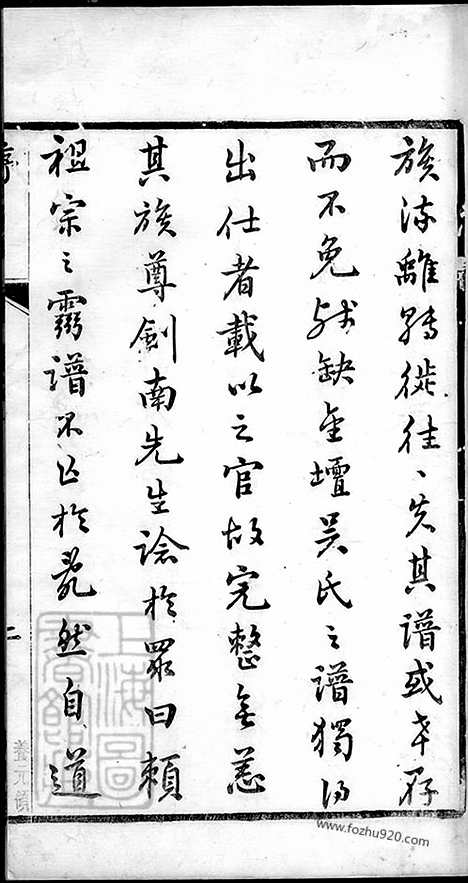 族流離轉徙往〻失其譜或幸存
而不免殘缺金壇吳氏之譜獨以
出仕者載以之官故完整無恙
其族尊劍南先生諗於眾曰賴
祖宗之靈譜不亡於亂然自道
序
二
上海圖書館藏
www.fozhu920.com